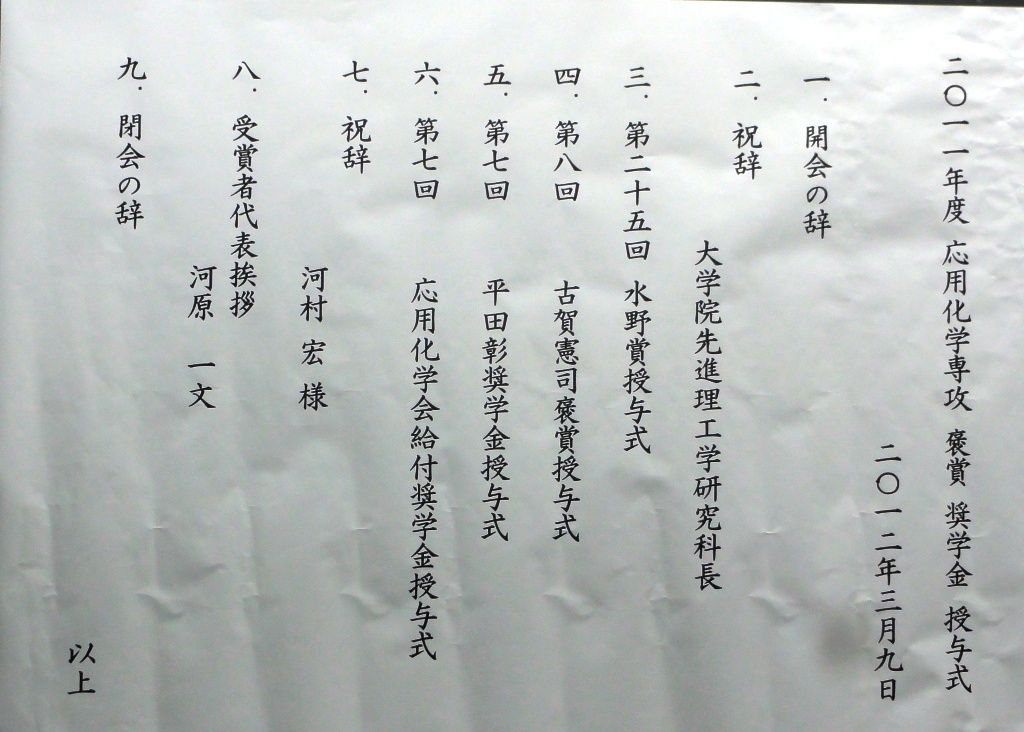 二〇一一年度 応用化学専攻 褒賞 奨学金 授与式
二〇一二年三月九日
一. 開会の辞
二. 祝辞
大学院先進理工学研究科長
三. 第二十五回 水野賞授与式
四. 第八回 古賀憲司褒賞授与式
五. 第七回 平田彰奨学金授与式
六. 第七回 応用化学会給付奨学金授与式
七. 祝辞
河村 宏 様
八. 受賞者代表挨拶
河原 一文
九. 閉会の辞
以上